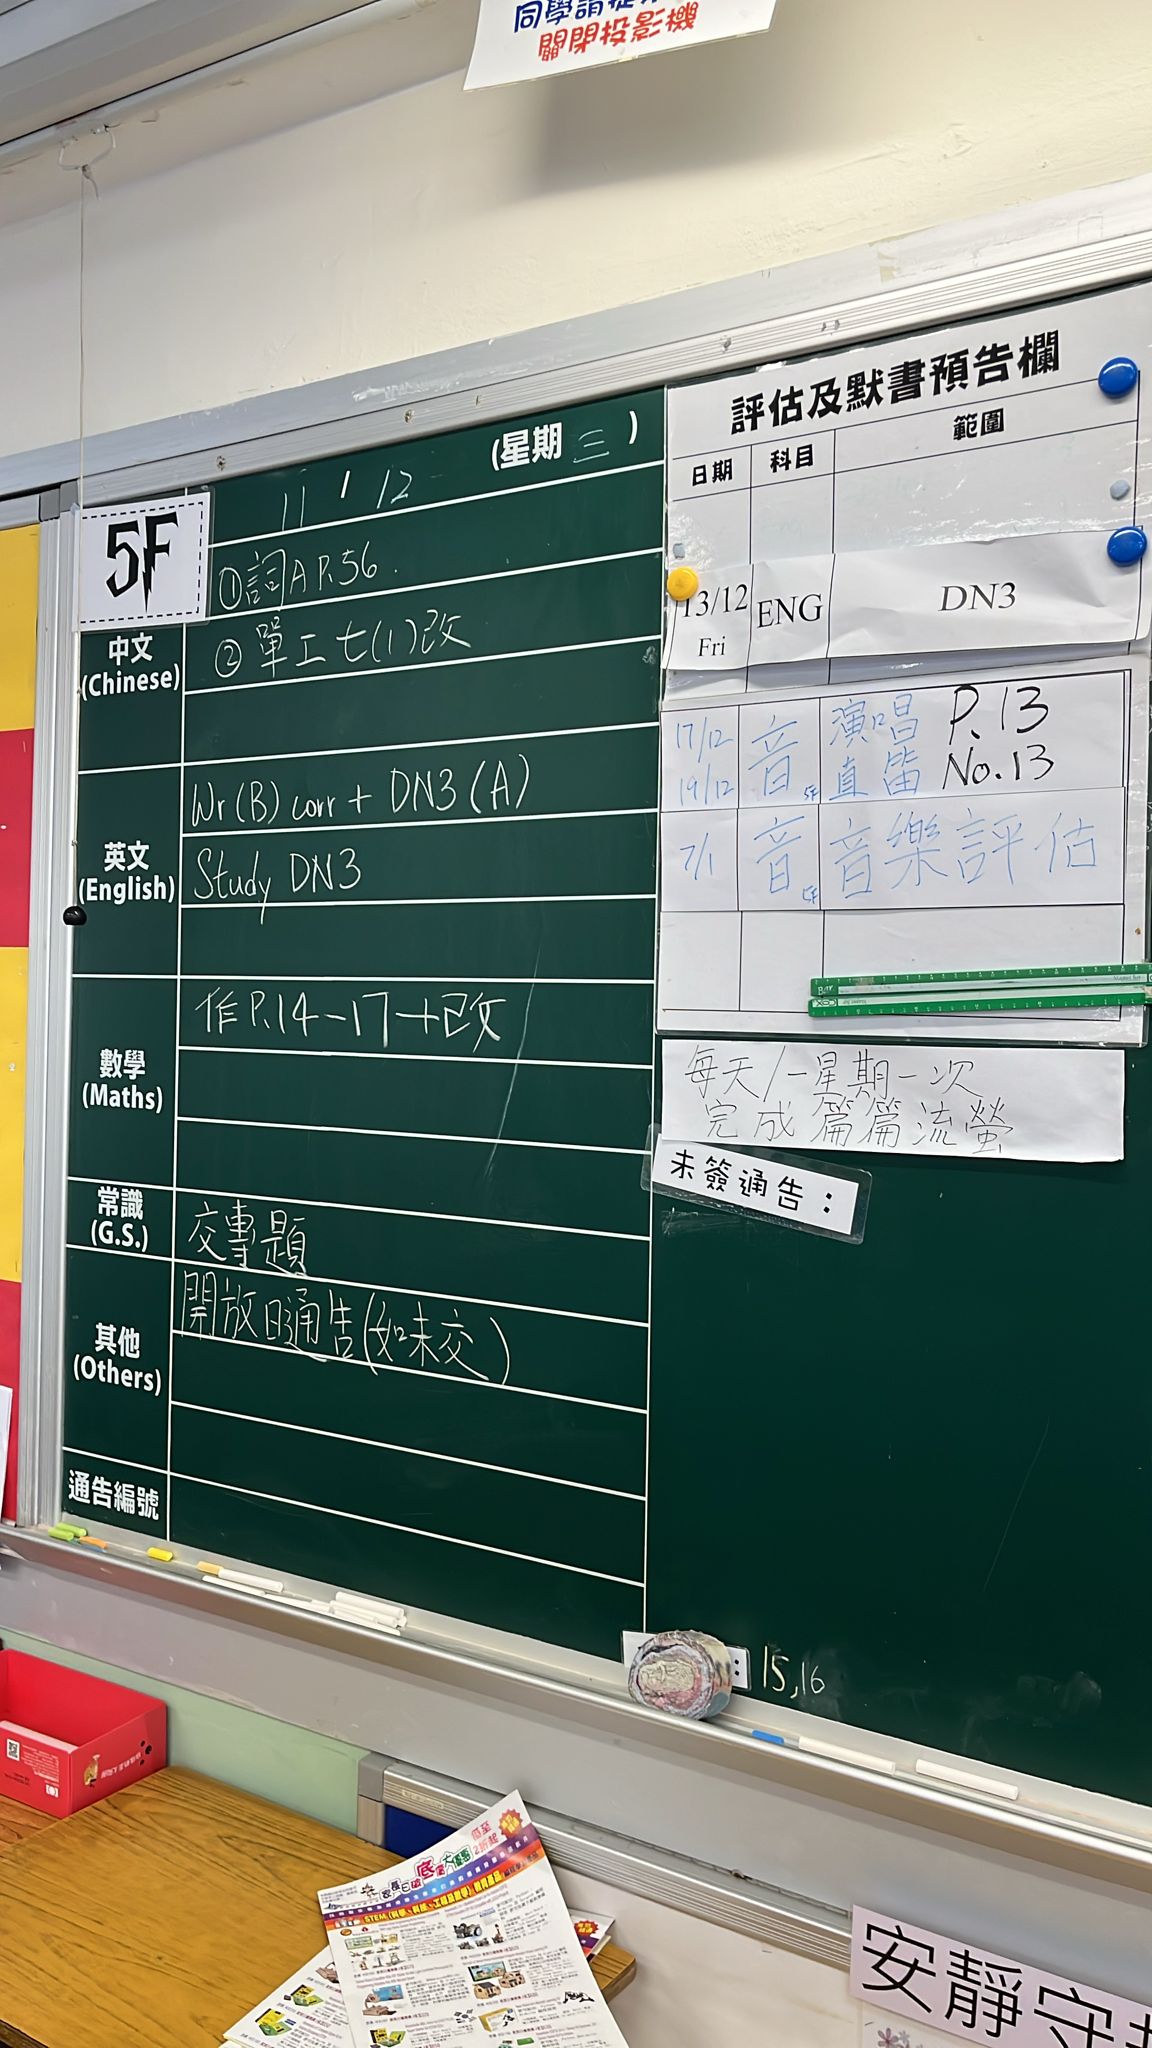 同學請
關閉投影機
5F
11 / 12 (星期 三 )
中文
(Chinese)
①詞A P.56.
② 單工七(1)改
英文
(English)
Wr(B) corr + DN3 (A)
Study DN3
數學
(Maths)
作P.14-17+改
常識
(G.S.)
交專題
其他
(Others)
開放日通告(如未交)
通告編號
評估及默書預告欄
日期 科目 範圍
13/12 Fri ENG DN3
17/12 音 5F 演唱 P.13
19/12 直笛 No.13
7/1 音 5F 音樂評估
每天/一星期一次
完成篇篇流螢
未簽通告：
: 15,16
低至
2折起
底價大優惠
STEM
安靜守